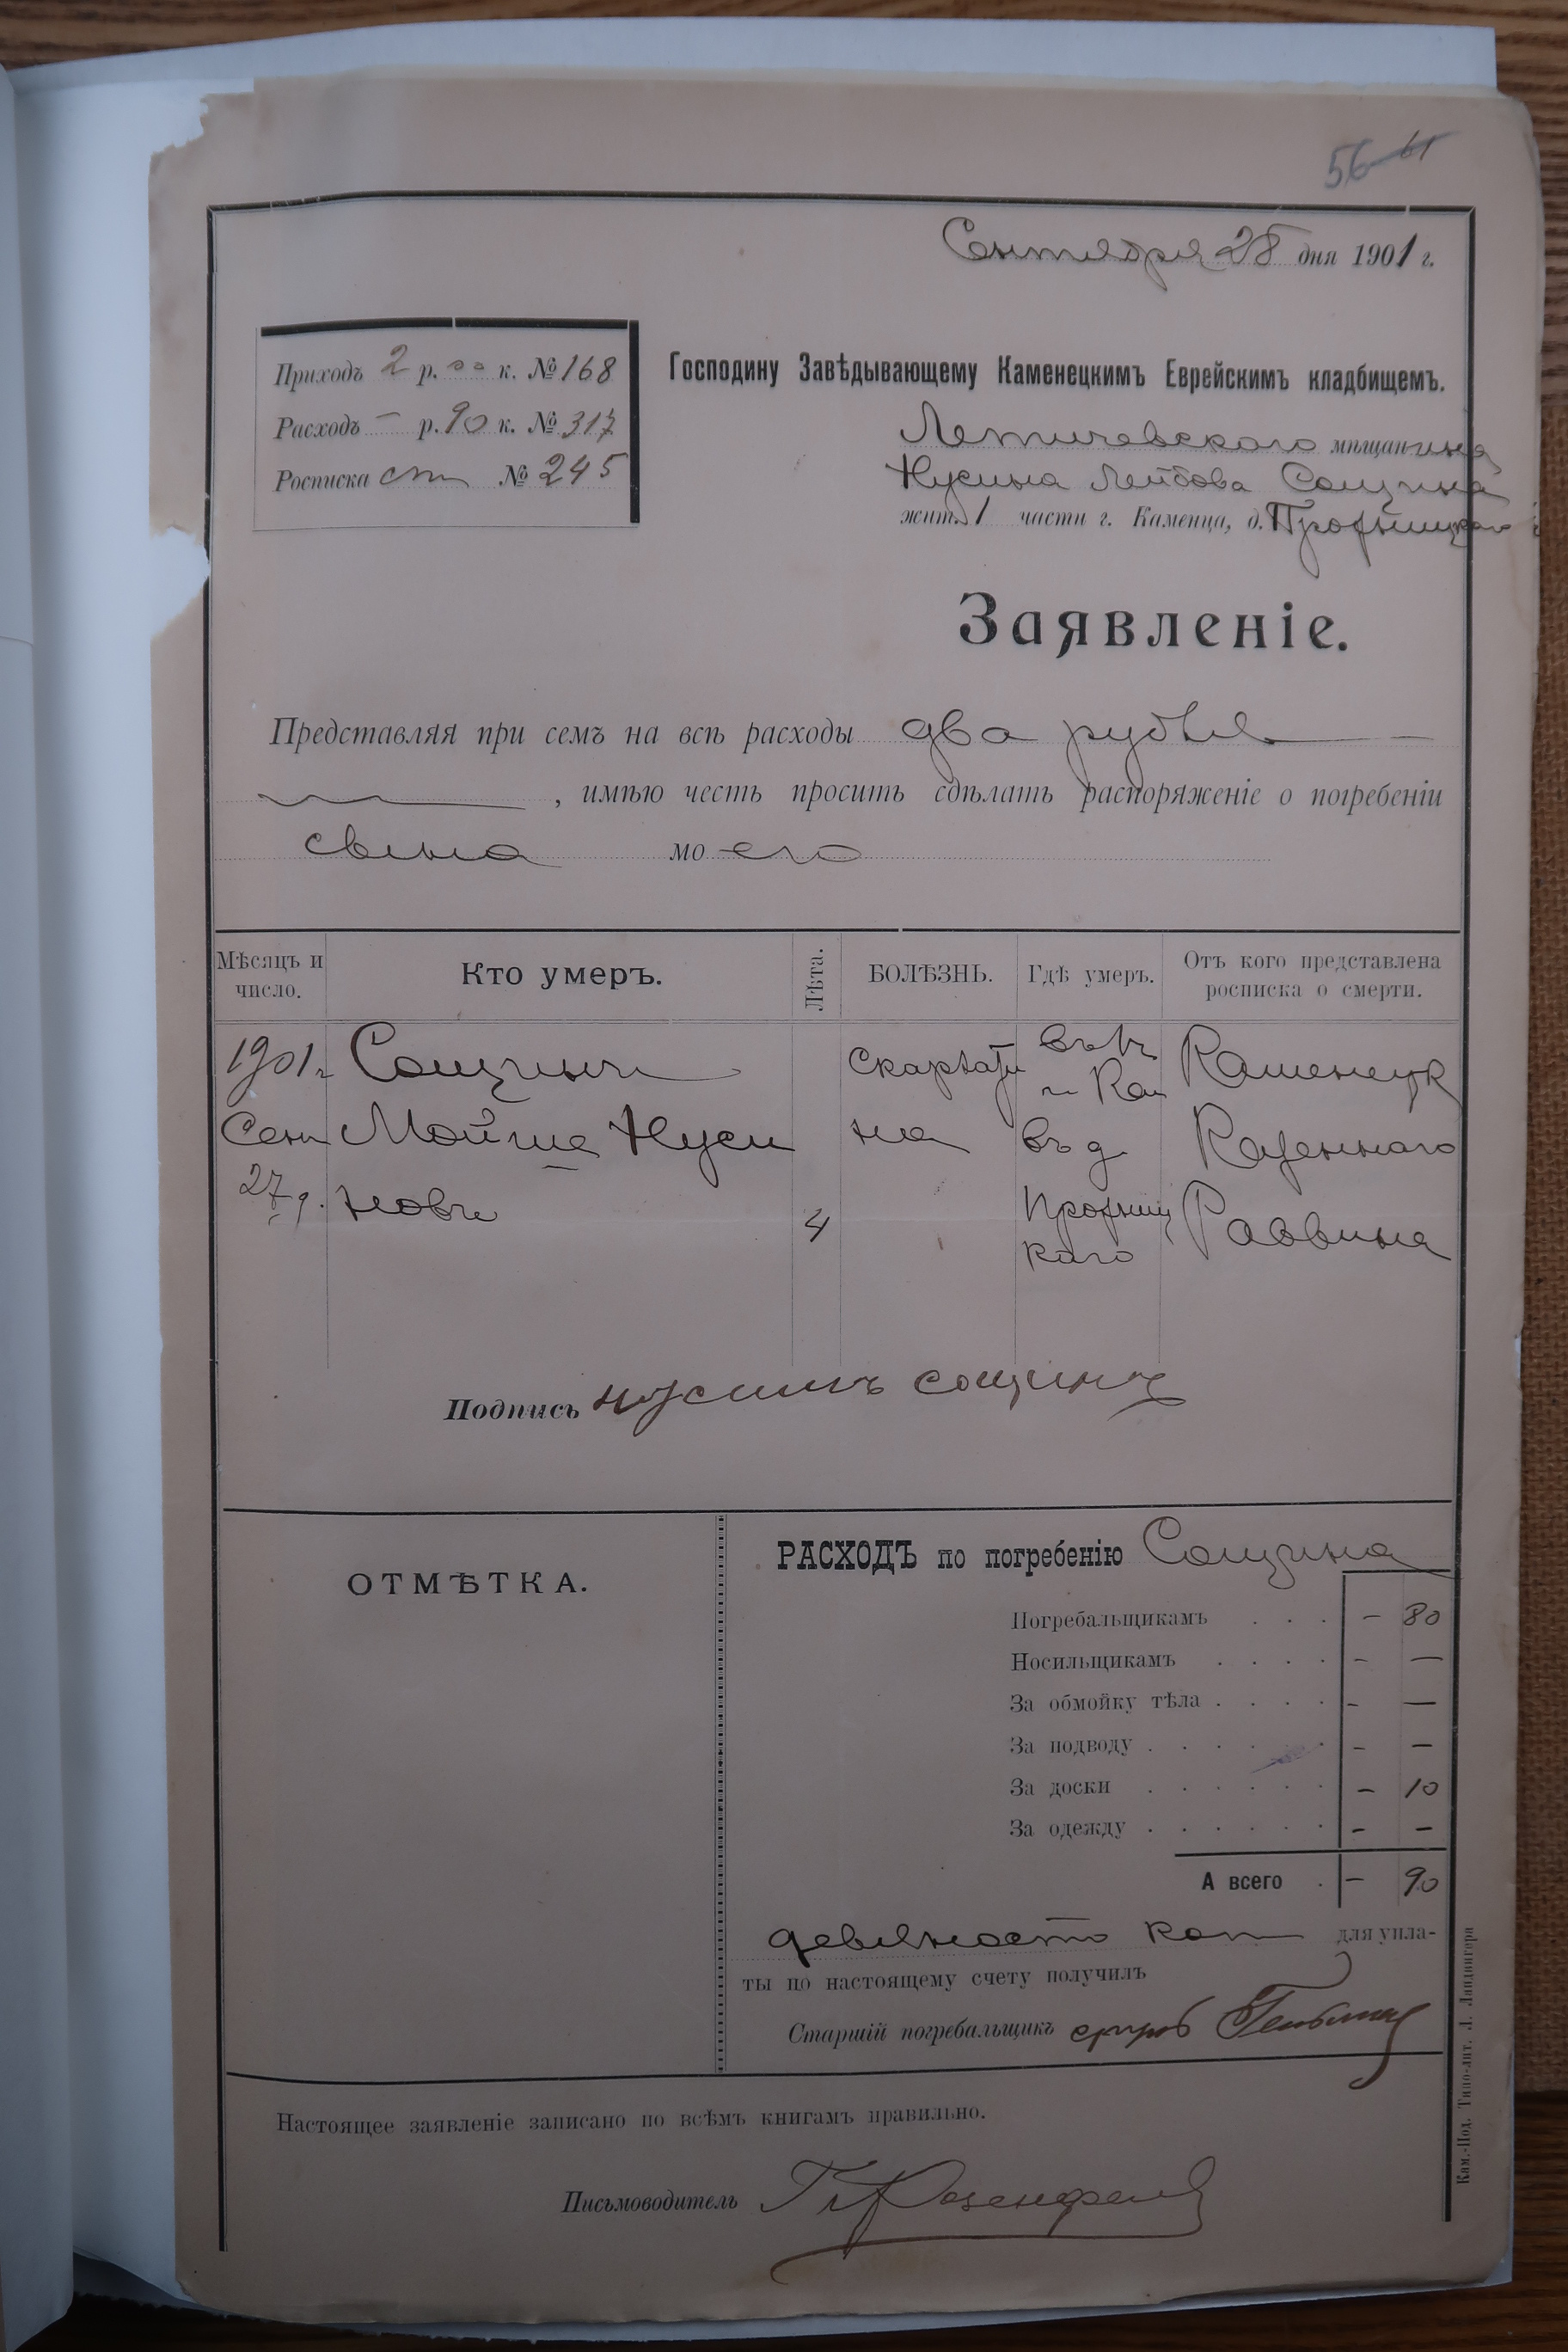 56 61
Сентября 28 дня 1901 г.
Приходъ 2 р. 00 к. № 168
Расходъ — р. 90 к. № 317
Росписка ст № 245
Господину Завѣдывающему Каменецкимъ Еврейскимъ кладбищемъ.
Летичевского мѣщанина
Нусина Лейбова Сощина
жит. 1 части г. Каменца, д.
Заявленіе.
Представляя при семъ на всѣ расходы два рубля —
, имѣю честь просить сдѣлать распоряженіе о погребеніи
сына моего
Мѣсяцъ и число.
Кто умеръ.
Лѣта.
БОЛѢЗНЬ.
Гдѣ умеръ.
Отъ кого представлена росписка о смерти.
1901 г.
Сен
27 д.
Сощинъ
Мойше Нуси
новъ
4
скарлати
на
въ
г. Кам
въ д.
каго
Каменецк
Казеннаго
Раввина
Подпись нусинъ сощинъ
ОТМѢТКА.
РАСХОДЪ по погребенію Сощина
Погребальщикамъ . . . — 80
Носильщикамъ . . . . — —
За обмойку тѣла . . . . — —
За подводу . . . . . — —
За доски . . . . . . — 10
За одежду . . . . . . — —
А всего . — 90
девяносто коп для упла-
ты по настоящему счету получилъ
Старшій погребальщикъ
Настоящее заявленіе записано по всѣмъ книгамъ правильно.
Письмоводитель Розенфельд
Кам.-Под. Типо-лит. Л. Ландвигера